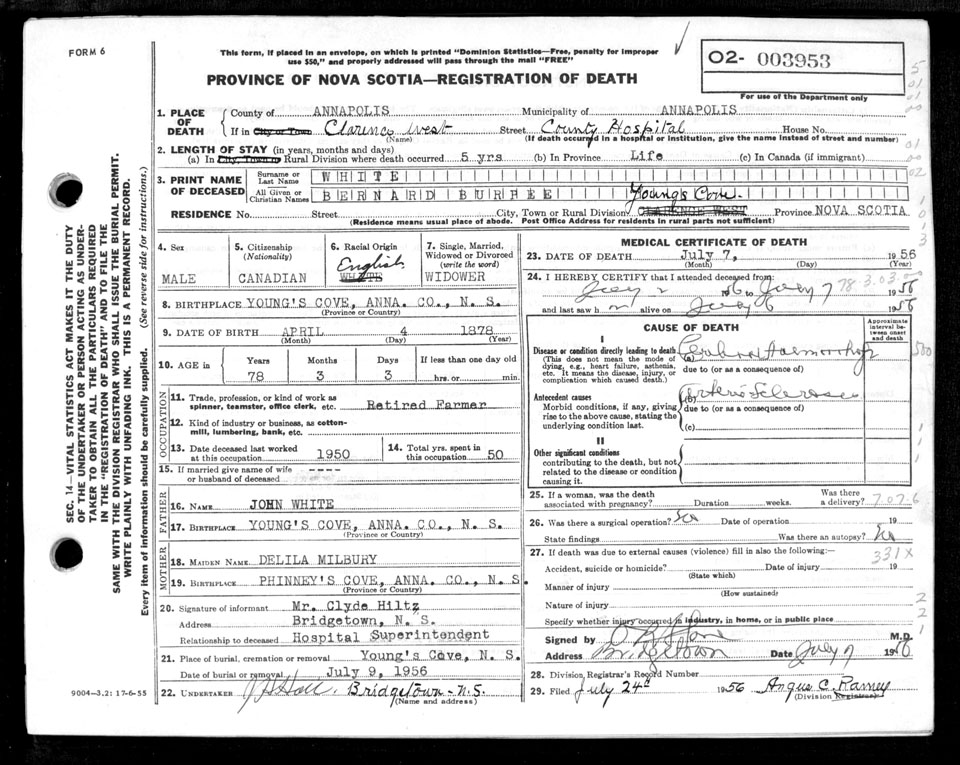 FORM 6
This form, if placed in an envelope, on which is printed "Dominion Statistics—Free, penalty for improper
use $50," and properly addressed will pass through the mail "FREE"
PROVINCE OF NOVA SCOTIA—REGISTRATION OF DEATH
02- 003953
For use of the Department only
1. PLACE OF DEATH County of ANNAPOLIS Municipality of ANNAPOLIS
If in City or Town Clarence West Street County Hospital House No.
(Name) (If death occurred in a hospital or institution, give the name instead of street and number)
2. LENGTH OF STAY (in years, months and days)
(a) In City, Town or Rural Division where death occurred 5 yrs (b) In Province Life (c) In Canada (if immigrant)
3. PRINT NAME OF DECEASED Surname or Last Name WHITE
All Given or Christian Names BERNARD BURPEE
Young's Cove
RESIDENCE No. Street City, Town or Rural Division CLARENCE WEST Province NOVA SCOTIA
(Residence means usual place of abode. Post Office Address for residents in rural parts not sufficient)
4. Sex MALE
5. Citizenship (Nationality) CANADIAN
6. Racial Origin English WHITE
7. Single, Married, Widowed or Divorced (write the word) WIDOWER
8. BIRTHPLACE YOUNG'S COVE, ANNA. CO., N. S.
(Province or Country)
9. DATE OF BIRTH APRIL 4 1878
(Month) (Day) (Year)
10. AGE in Years Months Days If less than one day old
78 3 3 hrs. or min.
OCCUPATION
11. Trade, profession, or kind of work as spinner, teamster, office clerk, etc. Retired Farmer
12. Kind of industry or business, as cotton-mill, lumbering, bank, etc.
13. Date deceased last worked at this occupation 1950
14. Total yrs. spent in this occupation 50
15. If married give name of wife or husband of deceased ----
FATHER
16. NAME JOHN WHITE
17. BIRTHPLACE YOUNG'S COVE, ANNA. CO., N. S.
(Province or Country)
MOTHER
18. MAIDEN NAME DELILA MILBURY
19. BIRTHPLACE PHINNEY'S COVE, ANNA. CO., N. S.
(Province or Country)
20. Signature of informant Mr. Clyde Hiltz
Address Bridgetown, N. S.
Relationship to deceased Hospital Superintendent
21. Place of burial, cremation or removal Young's Cove, N. S.
Date of burial or removal July 9, 1956
22. UNDERTAKER Bridgetown - N.S.
(Name and address)
MEDICAL CERTIFICATE OF DEATH
23. DATE OF DEATH July 7, 1956
(Month) (Day) (Year)
24. I HEREBY CERTIFY that I attended deceased from:
July 2 56 to July 7 1956
and last saw h m alive on July 6 1956
CAUSE OF DEATH
Approximate interval between onset and death
I
Disease or condition directly leading to death (a) Cerebral Haemorrhage
(This does not mean the mode of dying, e.g., heart failure, asthenia, etc. It means the disease, injury, or complication which caused death.)
due to (or as a consequence of)
Antecedent causes (b) Arterio Sclerosis
Morbid conditions, if any, giving rise to the above cause, stating the underlying condition last.
due to (or as a consequence of)
(c)
II
Other significant conditions
contributing to the death, but not related to the disease or condition causing it.
25. If a woman, was the death associated with pregnancy? Duration weeks. Was there a delivery?
7.07.6
26. Was there a surgical operation? No Date of operation 19
State findings Was there an autopsy? No
27. If death was due to external causes (violence) fill in also the following:—
331X
Accident, suicide or homicide? Date of injury 19
(State which)
Manner of injury
(How sustained)
Nature of injury
Specify whether injury occurred in industry, in home, or in public place
Signed by M.D.
Address Bridgetown Date July 7 1956
28. Division Registrar's Record Number
29. Filed July 24th 1956 Angus C. Ramey
(Division Registrar)
SEC. 14—VITAL STATISTICS ACT MAKES IT THE DUTY
OF THE UNDERTAKER OR PERSON ACTING AS UNDER-
TAKER TO OBTAIN ALL THE PARTICULARS REQUIRED
IN THE "REGISTRATION OF DEATH" AND TO FILE THE
SAME WITH THE DIVISION REGISTRAR WHO SHALL ISSUE THE BURIAL PERMIT.
WRITE PLAINLY WITH UNFADING INK. THIS IS A PERMANENT RECORD.
Every item of information should be carefully supplied. (See reverse side for instructions.)
9004-3.2: 17-6-55